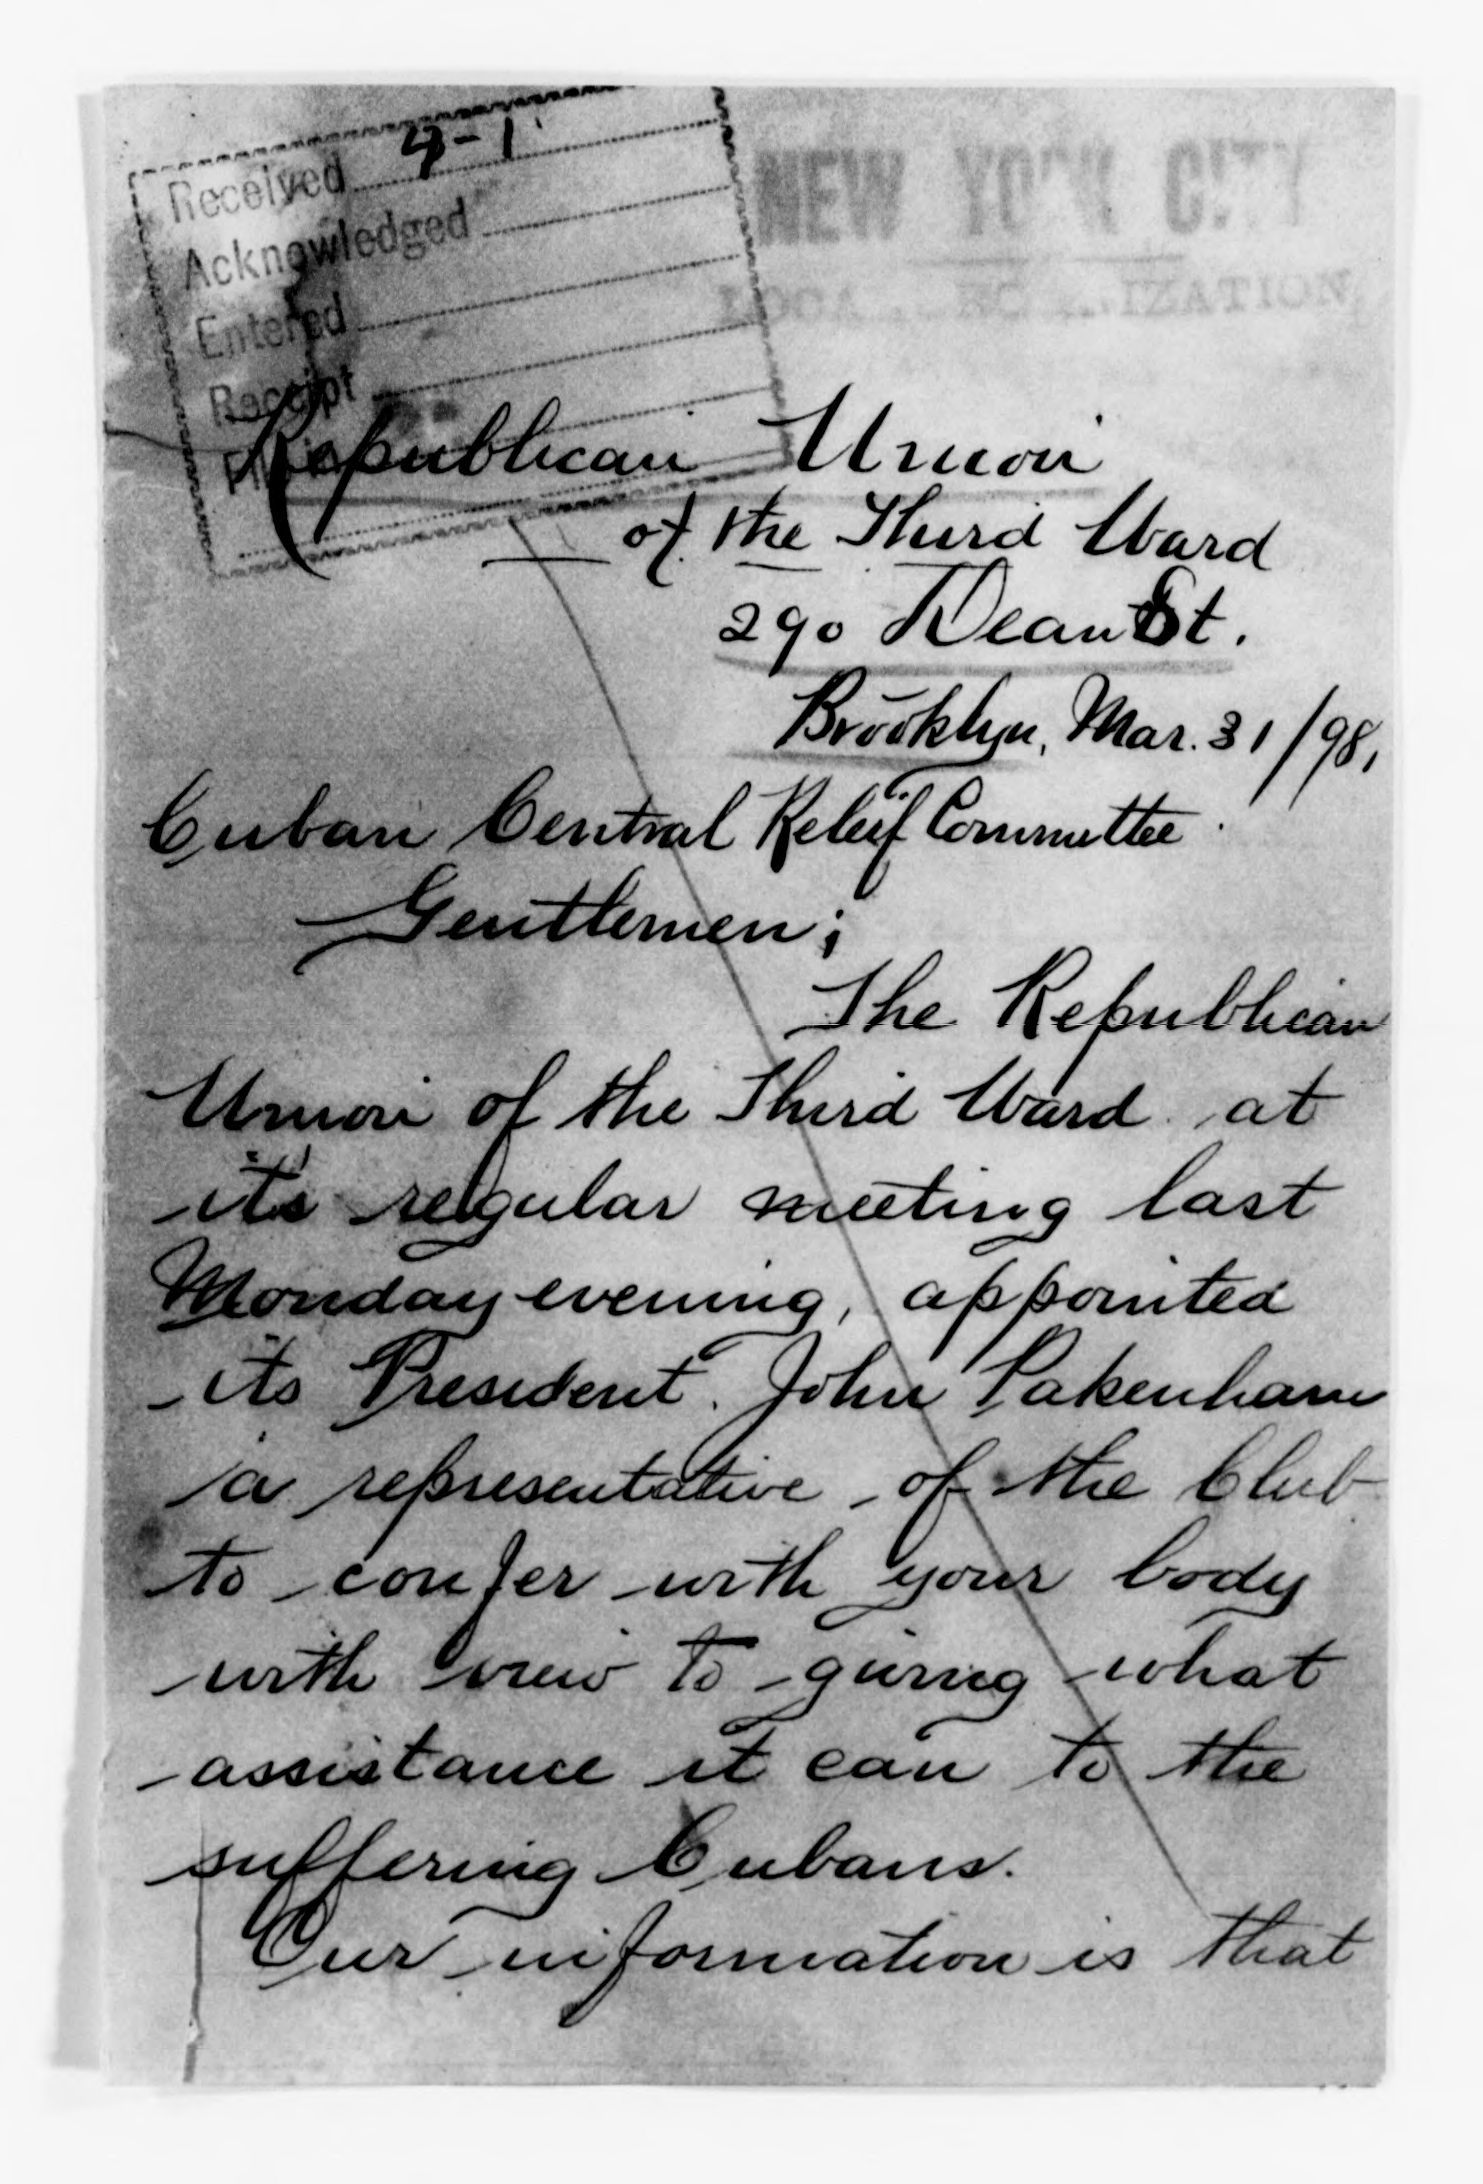 Received 4-1
Acknowledged
Entered
Receipt
NEW YORK CITY
Republican Union
of the Third Ward
290 Dean St.
Brooklyn, Mar. 31/98,
Cuban Central Relief Committee.
Gentlemen;
The Republican
Union of the Third Ward at
it's regular meeting last
Monday evening, appointed
its President. John Pakenham
a representative of the Club
to confer with your body
with view to giving what
assistance it can to the
suffering Cubans.
Our information is that